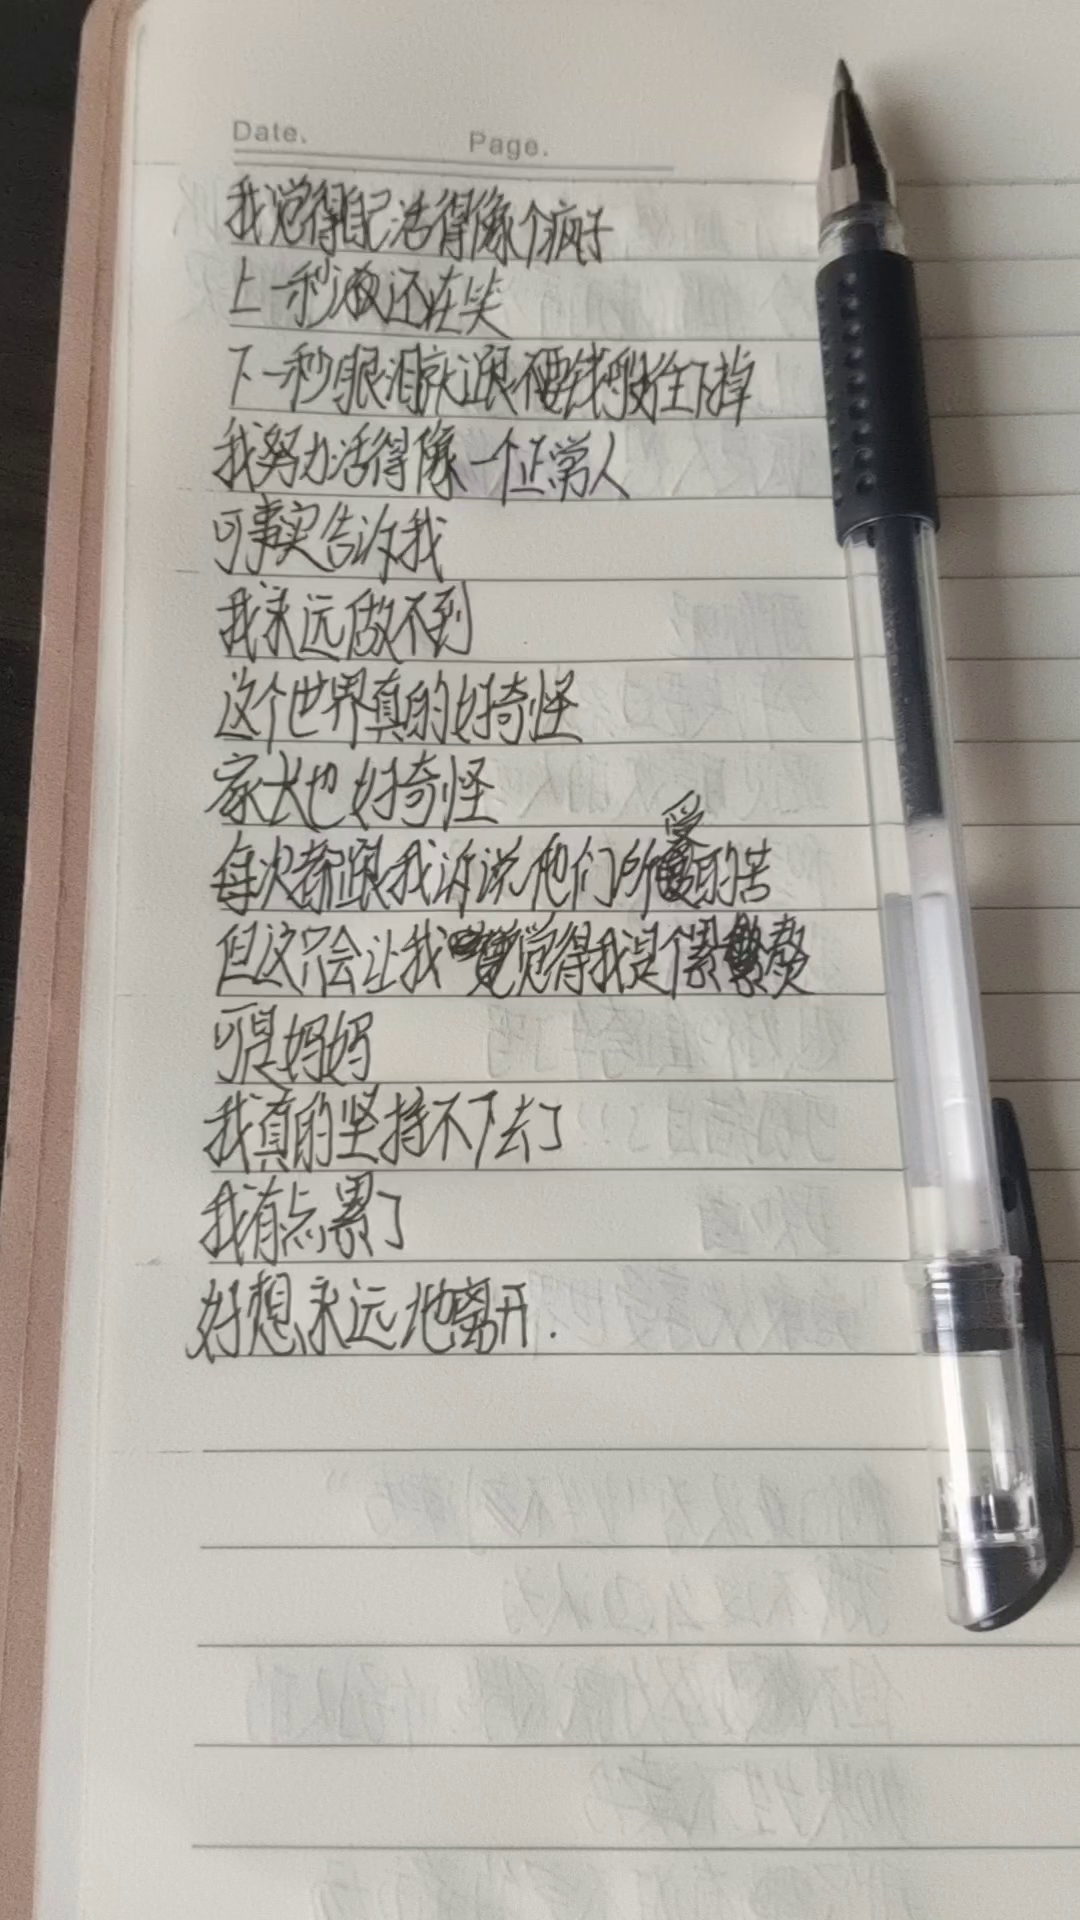 Date. Page.
我觉得自己活得像个疯子
上一秒还在笑
下一秒眼泪就跟不要钱般往下掉
我努力活得像一个正常人
可事实告诉我
我永远做不到
这个世界真的好奇怪
家长也好奇怪
每次都跟我诉说他们所受的苦
但这只会让我觉得我是个累赘
可是妈妈
我真的坚持不下去了
我有点累了
好想永远地离开.